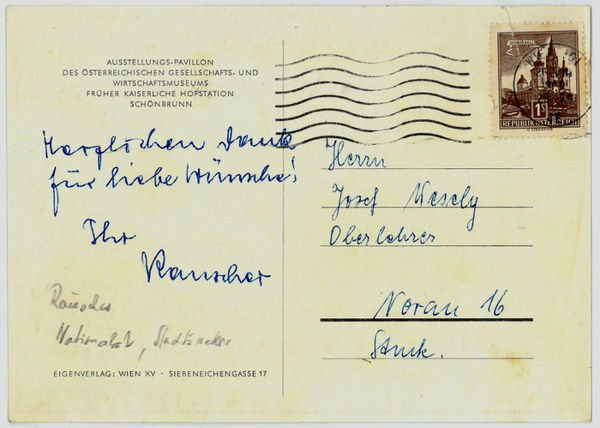 AUSSTELLUNGS-PAVILLON
DES ÖSTERREICHISCHEN GESELLSCHAFTS- UND
WIRTSCHAFTSMUSEUMS
FRÜHER KAISERLICHE HOFSTATION
SCHÖNBRUNN
Herzlichen Dank
für liebe Wünsche!
Ihr
Rauscher
Rauscher
Nationalrat,
EIGENVERLAG: WIEN XV · SIEBENEICHENGASSE 17
1S
REPUBLIK ÖSTERREICH
Herrn
Josef Wesely
Oberlehrer
Vorau 16
Stmk.